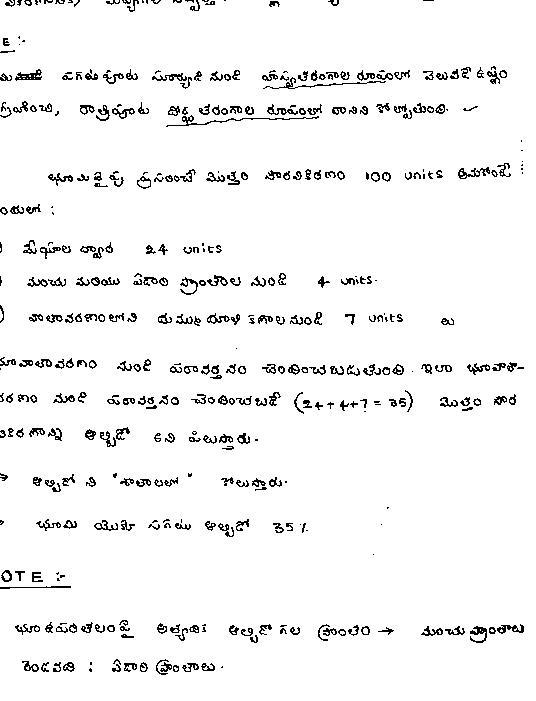 E :-
పగటిపూట సూర్యుడి నుండి హ్రస్వతరంగాల రూపంలో వెలువడే ఉష్ణం
గ్రహించి, రాత్రిపూట దీర్ఘ తరంగాల రూపంలో దానిని కోల్పోతుంది.
భూమి వైపు ప్రసరించే మొత్తం సౌరవికిరణం 100 units అనుకుంటే
మేఘాల ద్వారా 24 units
మంచు మరియు ఏడారి ప్రాంతాల నుండి 4 units.
వాతావరణంలోని దుమ్ము ధూళి కణాల నుండి 7 units లు
భూవాతావరణం నుండి పరావర్తనం చెందించబడుతుంది. ఇలా భూవాతా-
వరణం నుండి పరావర్తనం చెందించబడే (24+4+7=35) మొత్తం సౌర
వికిరణాన్ని ఆల్బిడో అని పిలుస్తారు.
→ ఆల్బిడో ని "శాతాలలో" కోలుస్తారు.
భూమి యొక్క సగటు ఆల్బిడో 35%
OTE :-
భూ ఉపరితలంపై అత్యధిక ఆల్బిడో గల ప్రాంతం → మంచు ప్రాంతాలు
రెండవది : ఏడారి ప్రాంతాలు.